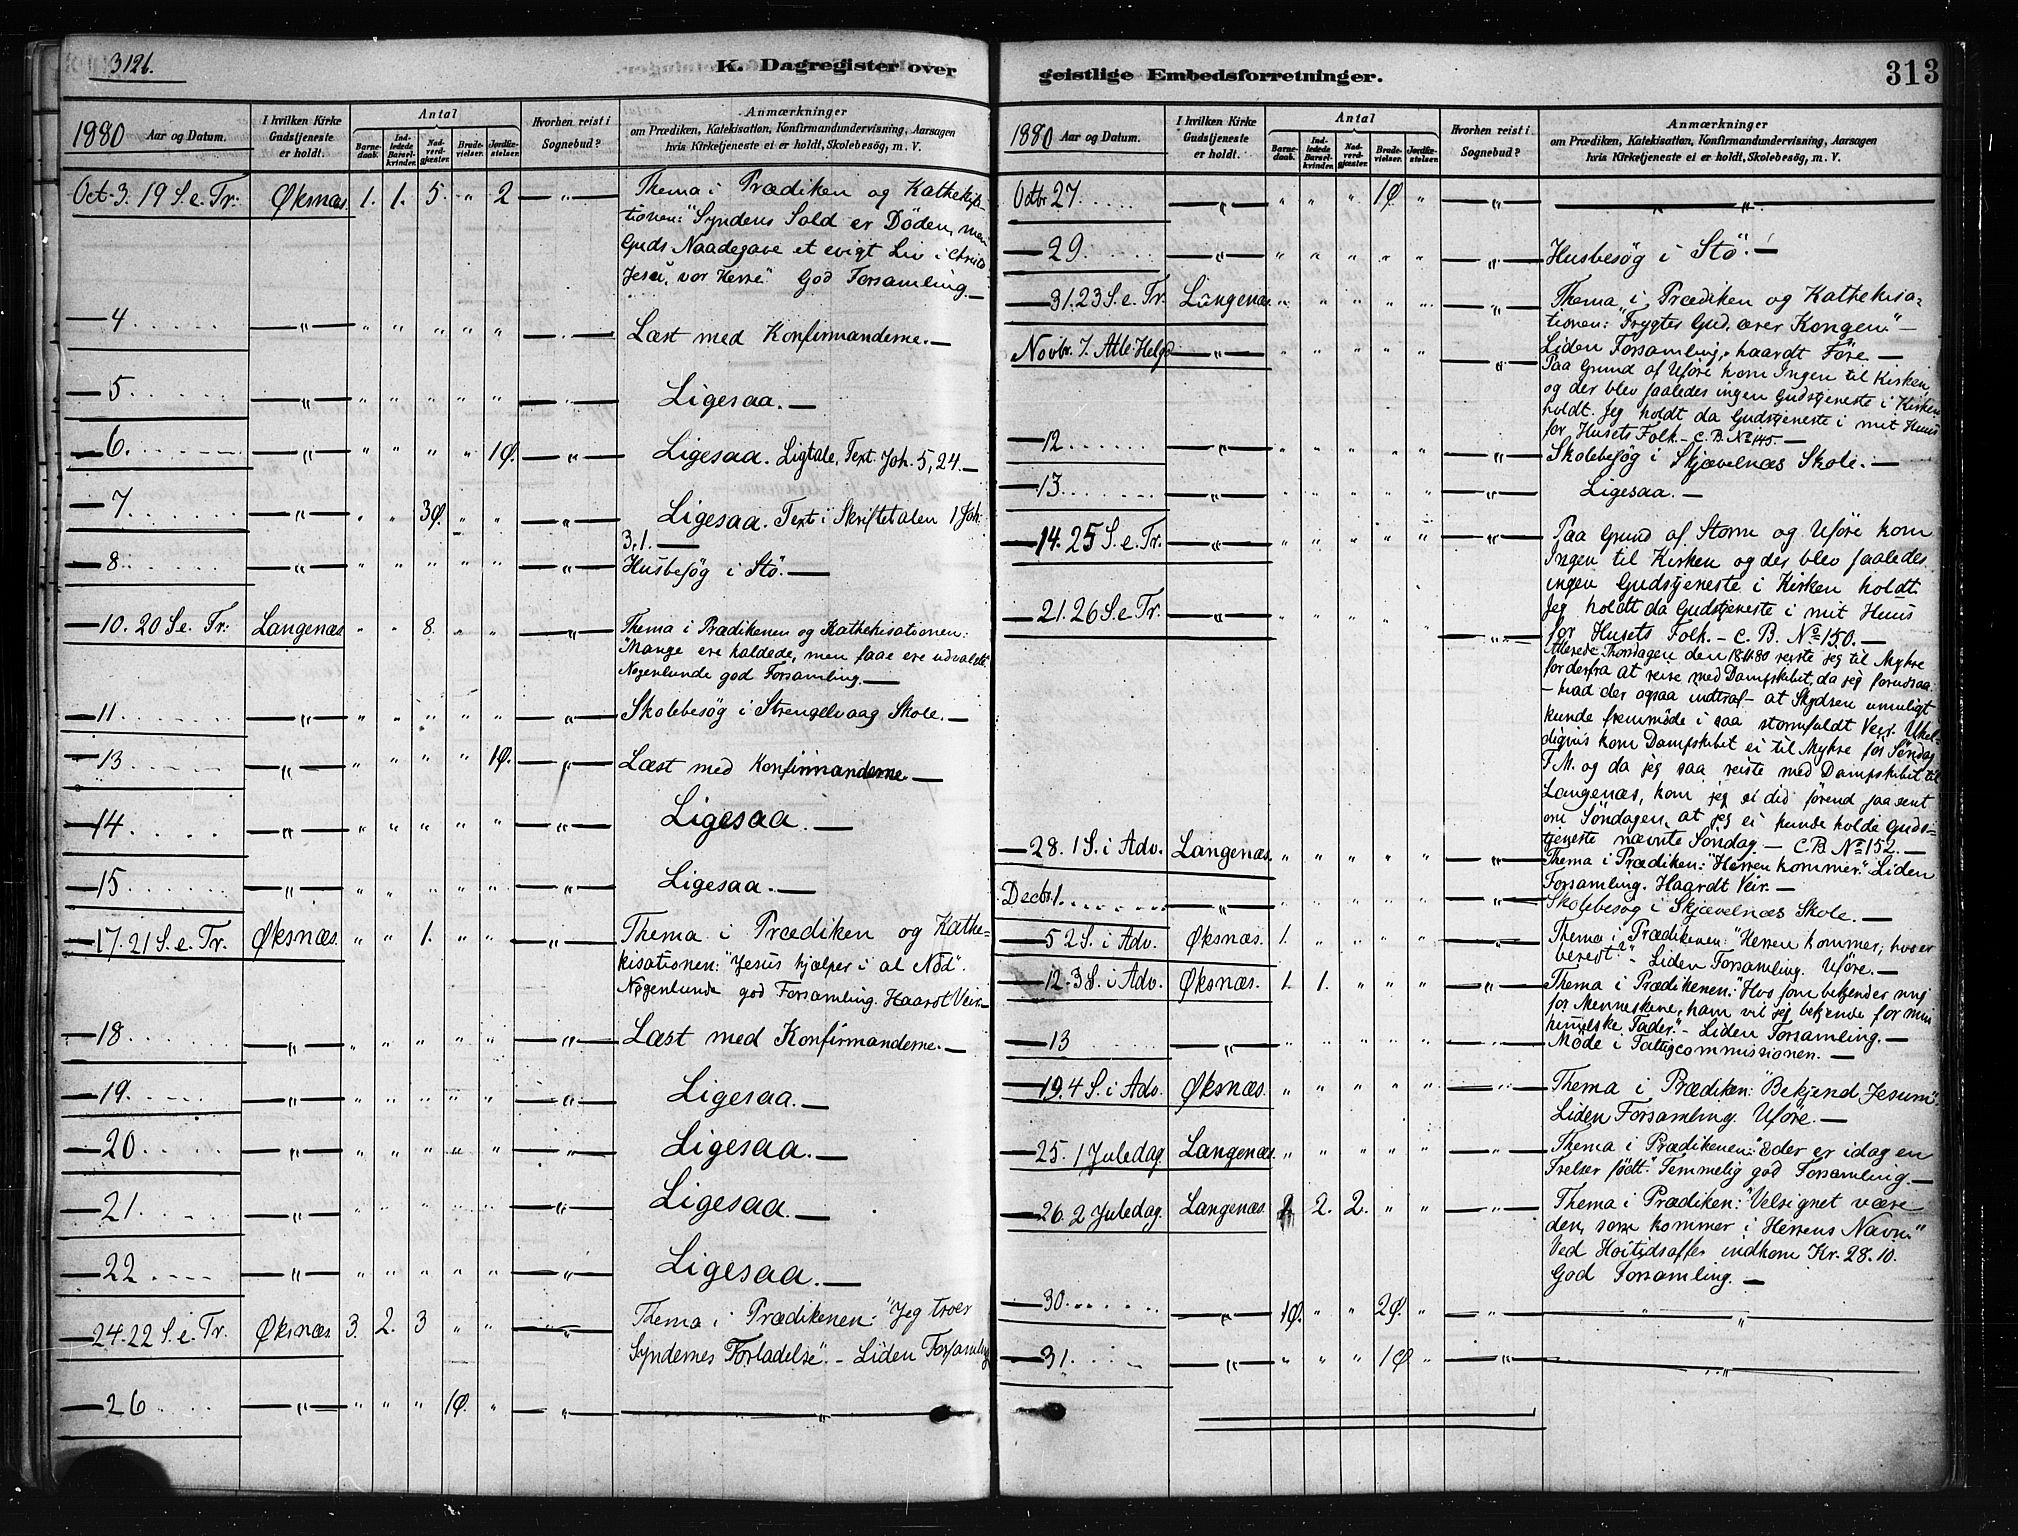 312b.
K. Dagregister over
1880 Aar og Datum.
I hvilken Kirke Gudstjeneste er holdt.
Antal
Barnedaab.
Indledede Barselkvinder.
Nadverdgjæster.
Brudevielser.
Jordfæstelser.
Hvorhen reist i Sognebud?
Anmærkninger
om Prædiken, Katekisation, Konfirmandundervisning, Aarsagen
hvis Kirketjeneste ei er holdt, Skolebesøg, m. V.
Oct. 3. 19 S. e. Tr: Øksnæs. 1. 1. 5. „ 2 — „ — Thema i Prædiken og Kathekisa-
tionen: "Syndens Sold er Døden, men
Guds Naadegave et evigt Liv i Christo
Jesu, vor Herre" God Forsamling. —
— 4 — „ — „ „ „ „ „ — „ — Læst med Konfirmanderne. —
— 5 — „ — „ „ „ „ „ — „ — Ligesaa. —
— 6 — „ — „ „ „ „ 1Ø. — „ — Ligesaa. Ligtale, Text Joh. 5, 24. —
— 7 — „ — „ „ 3Ø. „ „ — „ — Ligesaa. Text i Skriftetalen 1 Joh.
3, 1. —
— 8 — „ — „ „ „ „ „ — „ — Husbesøg i Stö. —
— 10. 20 S. e. Tr: Langenæs „ „ 8. „ „ — „ — Thema i Prædikenen og Kathekisationen:
"Mange ere kaldede, men faae ere udvalgte"
Nogenlunde god Forsamling. —
— 11 — „ — „ „ „ „ „ — „ — Skolebesøg i Strengelvaag Skole. —
— 13 — „ — „ „ 1Ø. — „ — Læst med Konfirmanderne —
— 14 — „ — „ „ „ „ „ — „ — Ligesaa. —
— 15 — „ — „ „ „ „ „ — „ — Ligesaa. —
— 17. 21 S. e. Tr. Øksnæs. „ „ 1. „ „ — „ — Thema i Prædiken og Kathe-
kisationen: "Jesus hjælper i al Nød".
Nogenlunde god Forsamling. Haardt Veir. —
— 18 — „ — „ „ „ „ „ — „ — Læst med Konfirmanderne. —
— 19 — „ — „ „ „ „ „ — „ — Ligesaa. —
— 20 — „ — „ „ „ „ „ — „ — Ligesaa. —
— 21 — „ — „ „ „ „ „ — „ — Ligesaa. —
— 22 — „ — „ „ „ „ „ — „ — Ligesaa. —
— 24. 22 S. e. Tr. Øksnæs 3. 2. 3 „ „ — „ — Thema i Prædikenen: "Jeg troer
Syndernes Forladelse". — Liden Forsamling
— 26 — „ — „ „ „ 1Ø. „ — „ — „ —
geistlige Embedsforretninger.
313
1880 Aar og Datum.
I hvilken Kirke Gudstjeneste er holdt.
Antal
Barnedaab.
Indledede Barselkvinder.
Nadverdgjæster.
Brudevielser.
Jordfæstelser.
Hvorhen reist i Sognebud?
Anmærkninger
om Prædiken, Katekisation, Konfirmandundervisning, Aarsagen
hvis Kirketjeneste ei er holdt, Skolebesøg, m. V.
Octbr. 27 — „ — „ „ „ 1Ø „ — „ — „ —
— 29 — „ — „ „ „ „ „ — „ — Husbesøg i Stö. —
— 31. 23 S. e. Tr. Langenæs. „ „ „ „ „ — „ — Thema i Prædiken og Kathekisa-
tionen: "Frygter Gud, ærer Kongen." —
Liden Forsamling, haardt Före —
Novbr. 7. Alle Helgd — „ — „ „ „ „ „ — „ — Paa Grund af Uföre kom Ingen til Kirken
og der blev saaledes ingen Gudstjeneste i Kirken
holdt. Jeg holdt da Gudstjeneste i mit Huus
for Husets Folk. — C. B. No 145 —
— 12 — „ — „ „ „ „ „ — „ — Skolebesøg i Skjævelnæs Skole. —
— 13 — „ — „ „ „ „ „ — „ — Ligesaa. —
— 14. 25 S. e. Tr. — „ — „ „ „ „ „ — „ — Paa Grund af Storm og Uföre kom
Ingen til Kirken og der blev saaledes
ingen Gudstjeneste i Kirken holdt.
Jeg holdt da Gudstjeneste i mit Huus
for Husets Folk. — C. B. No 150. —
— 21. 26 S. e. Tr. — „ — „ „ „ „ „ — „ — Allerede Thorsdagen den 18/11 80 reiste jeg til Myhre
for derfra at reise med Dampskibet, da jeg forudsaa
— hvad der ogsaa indtraf — at Skydsen umuligt
kunde fremmøde i saa stormfuldt Veir. Uhel-
digvis kom Dampskibet ei til Myhre før Søndag
F. M. og da jeg saa reiste med Dampskibet til
Langenæs, kom jeg ei did førend saa sent
om Søndagen, at jeg ei kunde holde Guds-
tjeneste nævnte Søndag. — C. B. No 152. —
— 28. 1 S. i Adv. Langenæs. „ „ „ „ „ — „ — Thema i Prædiken: "Herren kommer." Liden
Forsamling. Haardt Veir. —
Decbr. 1. — „ — „ „ „ „ „ — „ — Skolebesøg i Skjævelnæs Skole. —
— 5 2 S. i Adv. Øksnæs. 1. „ „ „ „ — „ — Thema i Prædikenen: "Herren kommer; hvo er
beredt?" — Liden Forsamling. Uføre. —
— 12. 3 S. i Adv. Øksnæs. 1. 1. „ „ „ — „ — Thema i Prædikenen: "Hvo som bekjender mig
for Menneskene, ham vil jeg bekjende for min
himmelske Fader." — Liden Forsamling. —
— 13 — „ — „ „ „ „ „ — „ — Møde i Fattigcommissionen. —
— 19. 4 S. i Adv. Øksnæs. „ „ „ „ „ — „ — Thema i Prædiken: "Bekjend Jesum".
Liden Forsamling. Uføre. —
— 25. 1 Juledag Langenæs. „ „ „ „ „ — „ — Thema i Prædikenen: "Eder er idag en
Frelser født." Temmelig god Forsamling. —
— 26. 2 Juledag. Langenæs. 2 2. 2. „ „ — „ — Thema i Prædiken: "Velsignet være
den, som kommer i Herrens Navn."
Ved Høitidsoffer indkom Kr. 28.10.
God Forsamling. —
— 30. — „ — 1Ø. „ „ 2Ø. „ — „ — „ —
— 31. — „ — „ „ „ 1Ø „ — „ — „ —